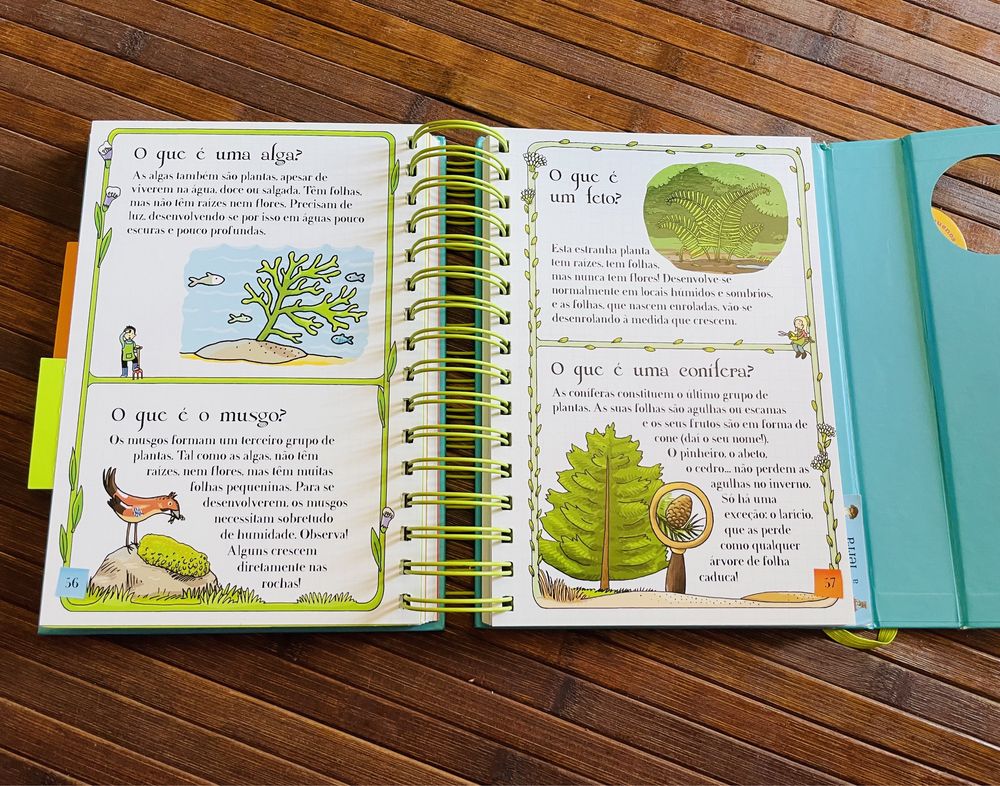 O que é uma alga?
As algas também são plantas, apesar de
viverem na água, doce ou salgada. Têm folhas,
mas não têm raízes nem flores. Precisam de
luz, desenvolvendo-se por isso em águas pouco
escuras e pouco profundas.
O que é o musgo?
Os musgos formam um terceiro grupo de
plantas. Tal como as algas, não têm
raízes, nem flores, mas têm muitas
folhas pequeninas. Para se
desenvolverem, os musgos
necessitam sobretudo
de humidade. Observa!
Alguns crescem
diretamente nas
rochas!
56
O que é
um feto?
Esta estranha planta
tem raízes, tem folhas,
mas nunca tem flores! Desenvolve-se
normalmente em locais humidos e sombrios,
e as folhas, que nascem enroladas, vão-se
desenrolando à medida que crescem.
O que é uma conífera?
As coníferas constituem o último grupo de
plantas. As suas folhas são agulhas ou escamas
e os seus frutos são em forma de
cone (daí o seu nome!).
O pinheiro, o abeto,
o cedro... não perdem as
agulhas no inverno.
Só há uma
exceção: o larício,
que as perde
como qualquer
árvore de folha
caduca!
57